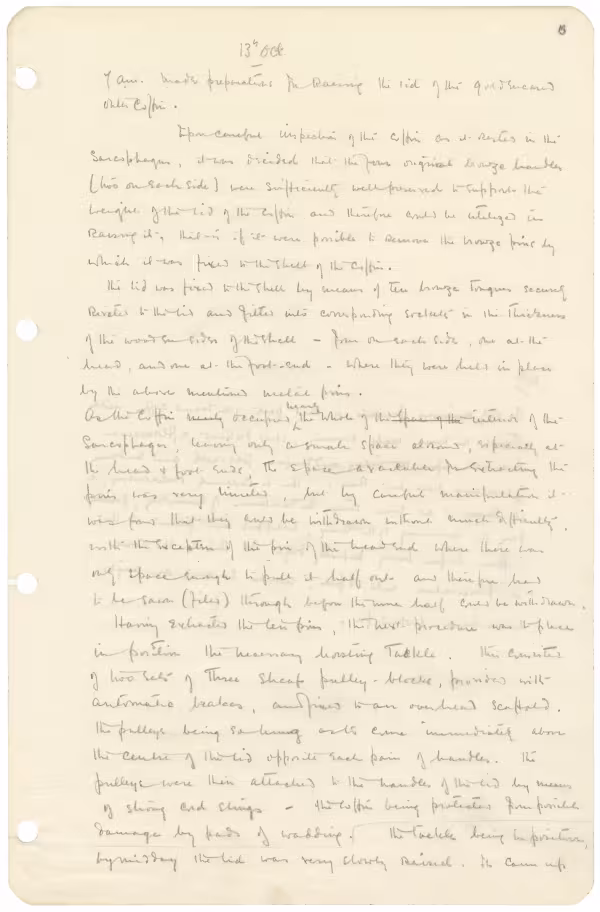 6
13th Oct
7 am. Made preparations for Raising the lid of the gold incased
outer Coffin.
Upon careful inspection of the Coffin as it rested in the
Sarcophagus, it was decided that the four original bronze handles
(two on each side) were sufficiently well preserved to support the
weight of the lid of the Coffin and therefore could be utilized in
Raising it, that is if it were possible to remove the bronze pins by
which it was fixed to the shell of the Coffin.
The lid was fixed to the shell by means of ten bronze tongues securely
Riveted to the lid and fitted into corresponding sockets in the thickness
of the wooden sides of the shell – four on each side, one at the
head, and one at the foot-end – where they were held in place
by the above mentioned metal pins.
As the Coffin nearly occupied nearly the whole of the space of the interior of the
Sarcophagus, leaving only a small space around, especially at
the head & foot ends, the space available for extracting the
pins was very limited, but by careful manipulation it
was found that they could be withdrawn without much difficulty,
with the exception of the pin of the head end where there was
only space enough to pull it half out and therefore had
to be sawn (filed) through before the inner half could be withdrawn.
Having extracted the ten pins, the next procedure was to place
in position the necessary hoisting Tackle. This consisted
of two sets of Three Sheaf pulley-blocks, provided with
automatic brakes, and fixed to an overhead scaffold.
the pulleys being so hung as to come immediately above
the centre of the lid opposite each pair of handles. The
pulleys were then attached to the handles of the lid by means
of strong cord slings – the Coffin being protected from possible
damage by pads of wadding. The tackle being in position,
by midday the lid was very slowly Raised. It came up